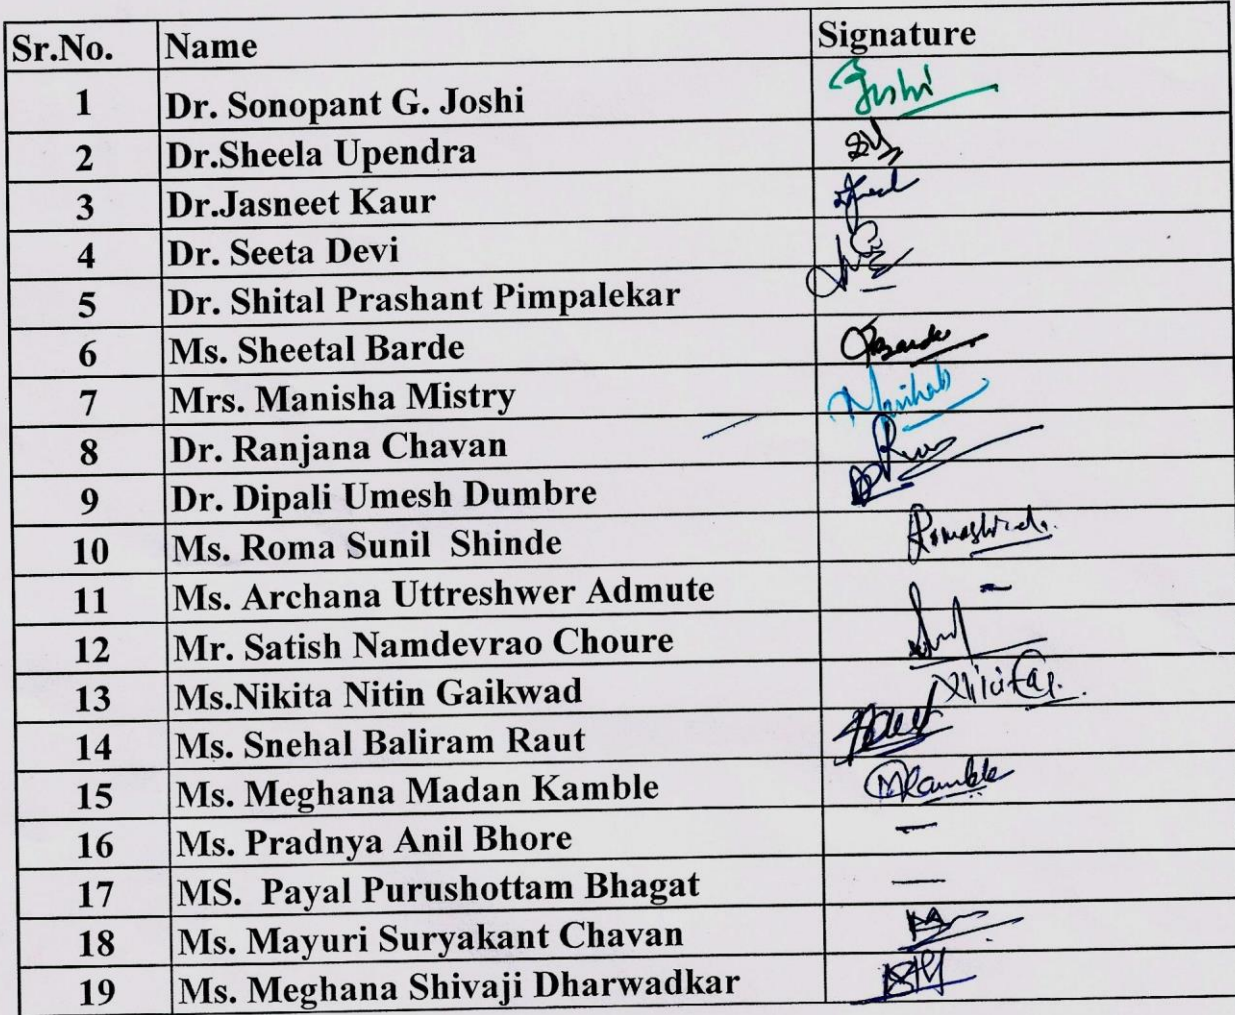 Sr.No. Name Signature
1 Dr. Sonopant G. Joshi Joshi
2 Dr.Sheela Upendra
3 Dr.Jasneet Kaur
4 Dr. Seeta Devi
5 Dr. Shital Prashant Pimpalekar
6 Ms. Sheetal Barde Barde
7 Mrs. Manisha Mistry
8 Dr. Ranjana Chavan
9 Dr. Dipali Umesh Dumbre
10 Ms. Roma Sunil Shinde
11 Ms. Archana Uttreshwer Admute –
12 Mr. Satish Namdevrao Choure
13 Ms.Nikita Nitin Gaikwad
14 Ms. Snehal Baliram Raut
15 Ms. Meghana Madan Kamble MKamble
16 Ms. Pradnya Anil Bhore –
17 MS. Payal Purushottam Bhagat —
18 Ms. Mayuri Suryakant Chavan
19 Ms. Meghana Shivaji Dharwadkar